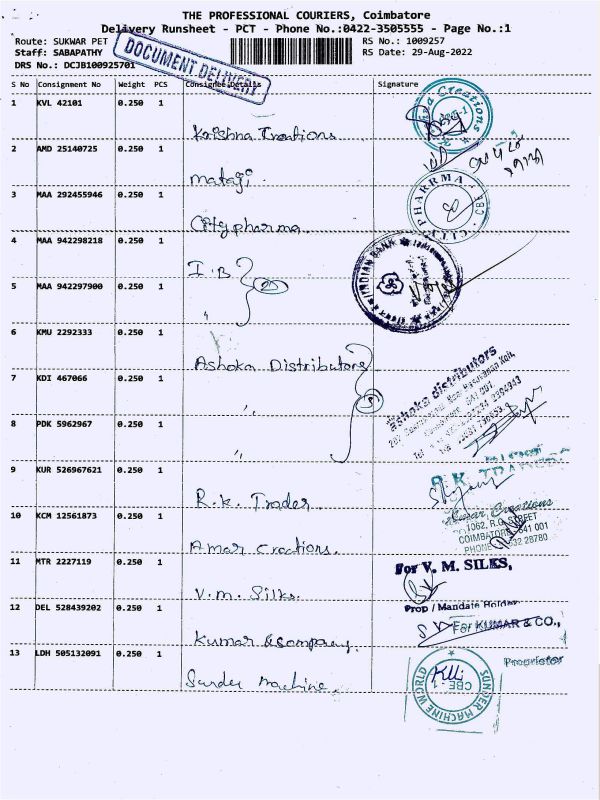 THE PROFESSIONAL COURIERS, Coimbatore
Delivery Runsheet - PCT - Phone No.:0422-3505555 - Page No.:1
Route: SUKWAR PET
Staff: SABAPATHY
DRS No.: DCJB100925701
DOCUMENT DELIVERY
RS No.: 1009257
RS Date: 29-Aug-2022
S No Consignment No Weight PCS Consignee Details Signature
1 KVL 42101 0.250 1
Krishna Creations
2 AMD 25140725 0.250 1
mataji
3 MAA 292455946 0.250 1
City pharma
PHARRMA CBE
4 MAA 942298218 0.250 1
I.B
INDIAN BANK
5 MAA 942297900 0.250 1
"
6 KMU 2292333 0.250 1
Ashoka Distributors
ashoka distributors
7 KDI 467066 0.250 1
"
3
8 PDK 5962967 0.250 1
"
9 KUR 526967621 0.250 1
R.K. Trader
10 KCM 12561873 0.250 1
Amar Creations.
Creations
1062, R.G. STREET
COIMBATORE 641 001
PHONE
11 MTR 2227119 0.250 1
V.M. Silks.
For V. M. SILKS,
Prop / Mandate Holder
12 DEL 528439202 0.250 1
Kumar & company.
For KUMAR & CO.,
Proprietor
13 LDH 505132091 0.250 1
Sunder Machine.
SUNDER MACHINE WORLD
CBE-1